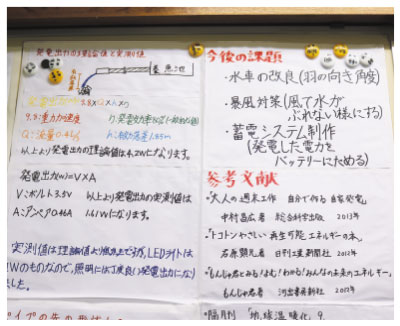 発電出力の理論値と実測値
養魚池
発電出力(W)=9.8×Q×h×η
9.8:重力加速度
Q:流量
h:有効落差1.85m
以上より発電出力の理論値は4.2Wになります。
発電出力(W)=V×A
V:ボルト3.5V 以上より発電出力の実測値は
A:アンペア0.46A 1.61Wになります。
実測値は理論値より
Wのものなので、照明には丁度良い発電出力になり
ました。
今後の課題
・水車の改良(羽の向き角度)
・暴風対策(風で水が
ぶれない様にする)
・蓄電システム制作
(発電した電力を
バッテリーにためる)
参考文献
・「大人の週末工作 自分で作る自家発電」
中村昌広著 総合科学出版 2013年
・「トコトンやさしい再生可能エネルギーの本」
石原顕光著 日刊工業新聞社 2012年
「もんじゅ君とみる!よむ!わかる!みんなの未来のエネルギー」
もんじゅ君著 河出書房新社 2012年
・隔月刊 「地球温暖化」